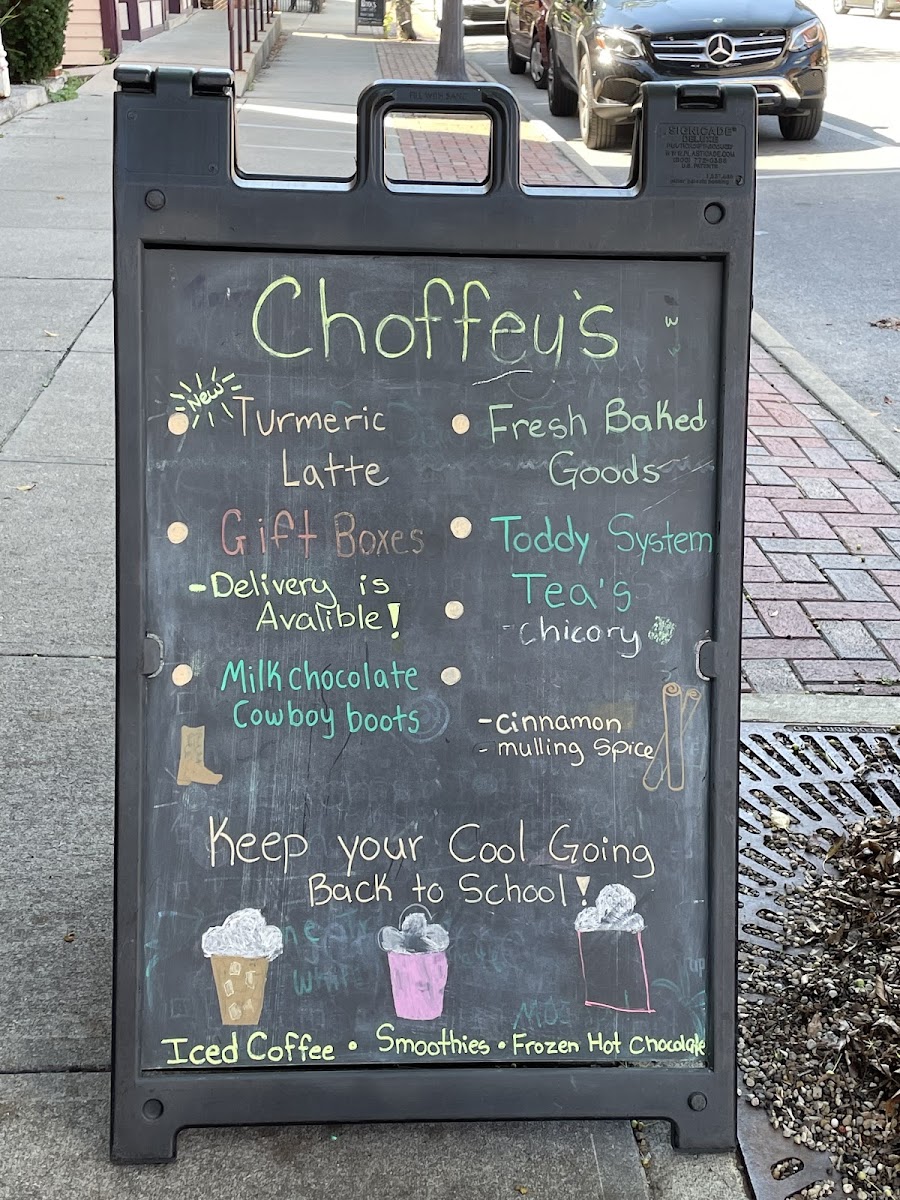 FILL WITH SAND
SIGNICADE®
DELUXE
WWW.PLASTICADE.COM
Choffey's
New
Turmeric
Latte
Gift Boxes
-Delivery is
Avalible!
Milk chocolate
Cowboy boots
Fresh Baked
Goods
Toddy System
Tea's
-chicory
-cinnamon
- mulling spice
Keep your Cool Going
Back to School!
Iced Coffee • Smoothies • Frozen Hot Chocolate